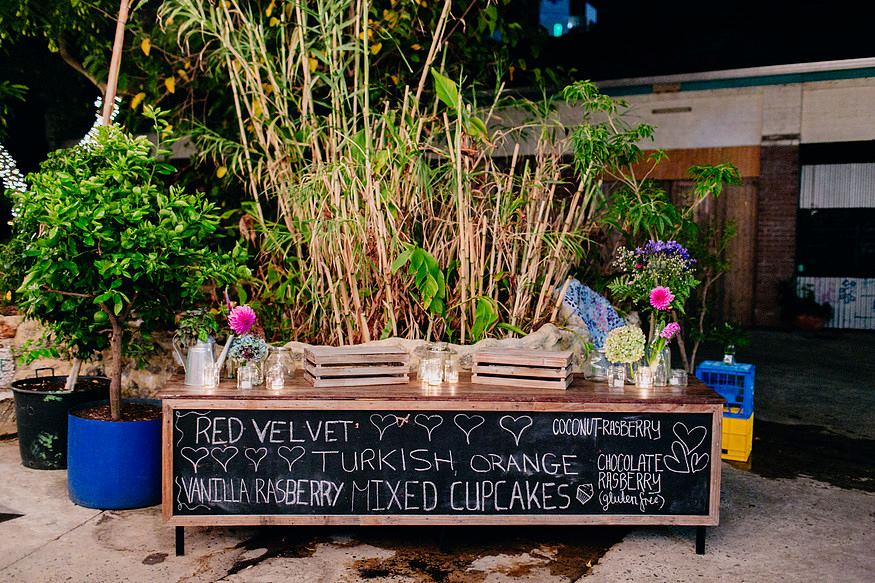 RED VELVET
TURKISH, ORANGE
VANILLA RASBERRY MIXED CUPCAKES
COCONUT-RASBERRY
CHOCOLATE
RASBERRY
(gluten free)